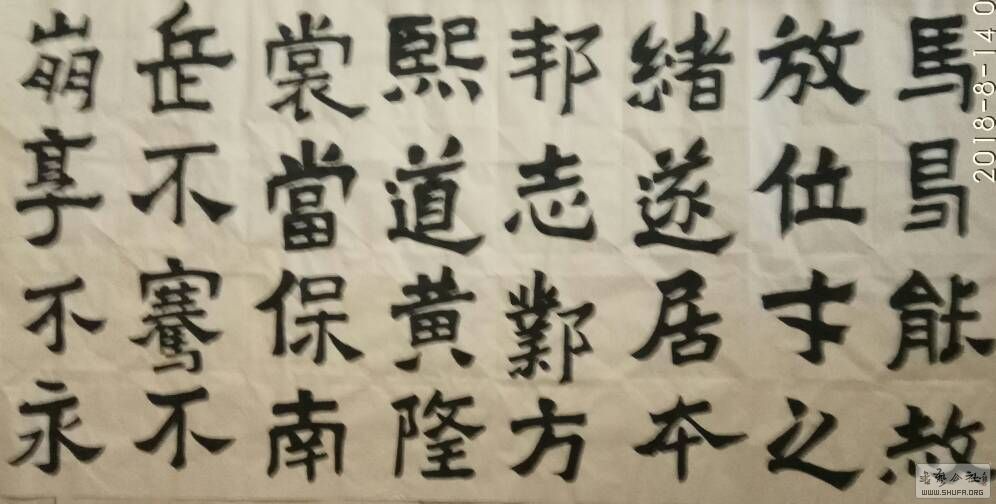 馬能赦
放位寸之
緒遂居本
邦志鄴方
熙道黄隆
裳當保南
岳不騫不
崩享不永
2018-8-14 0
WWW.SHUFA.ORG